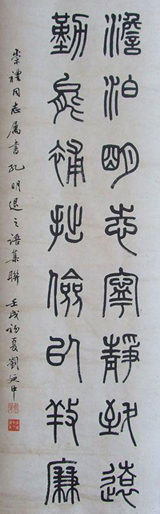 澹泊明志寧靜致遠
勤能補拙儉以養廉
崇禮同志屬書孔明退之語集聯 壬戌初夏劉迺中